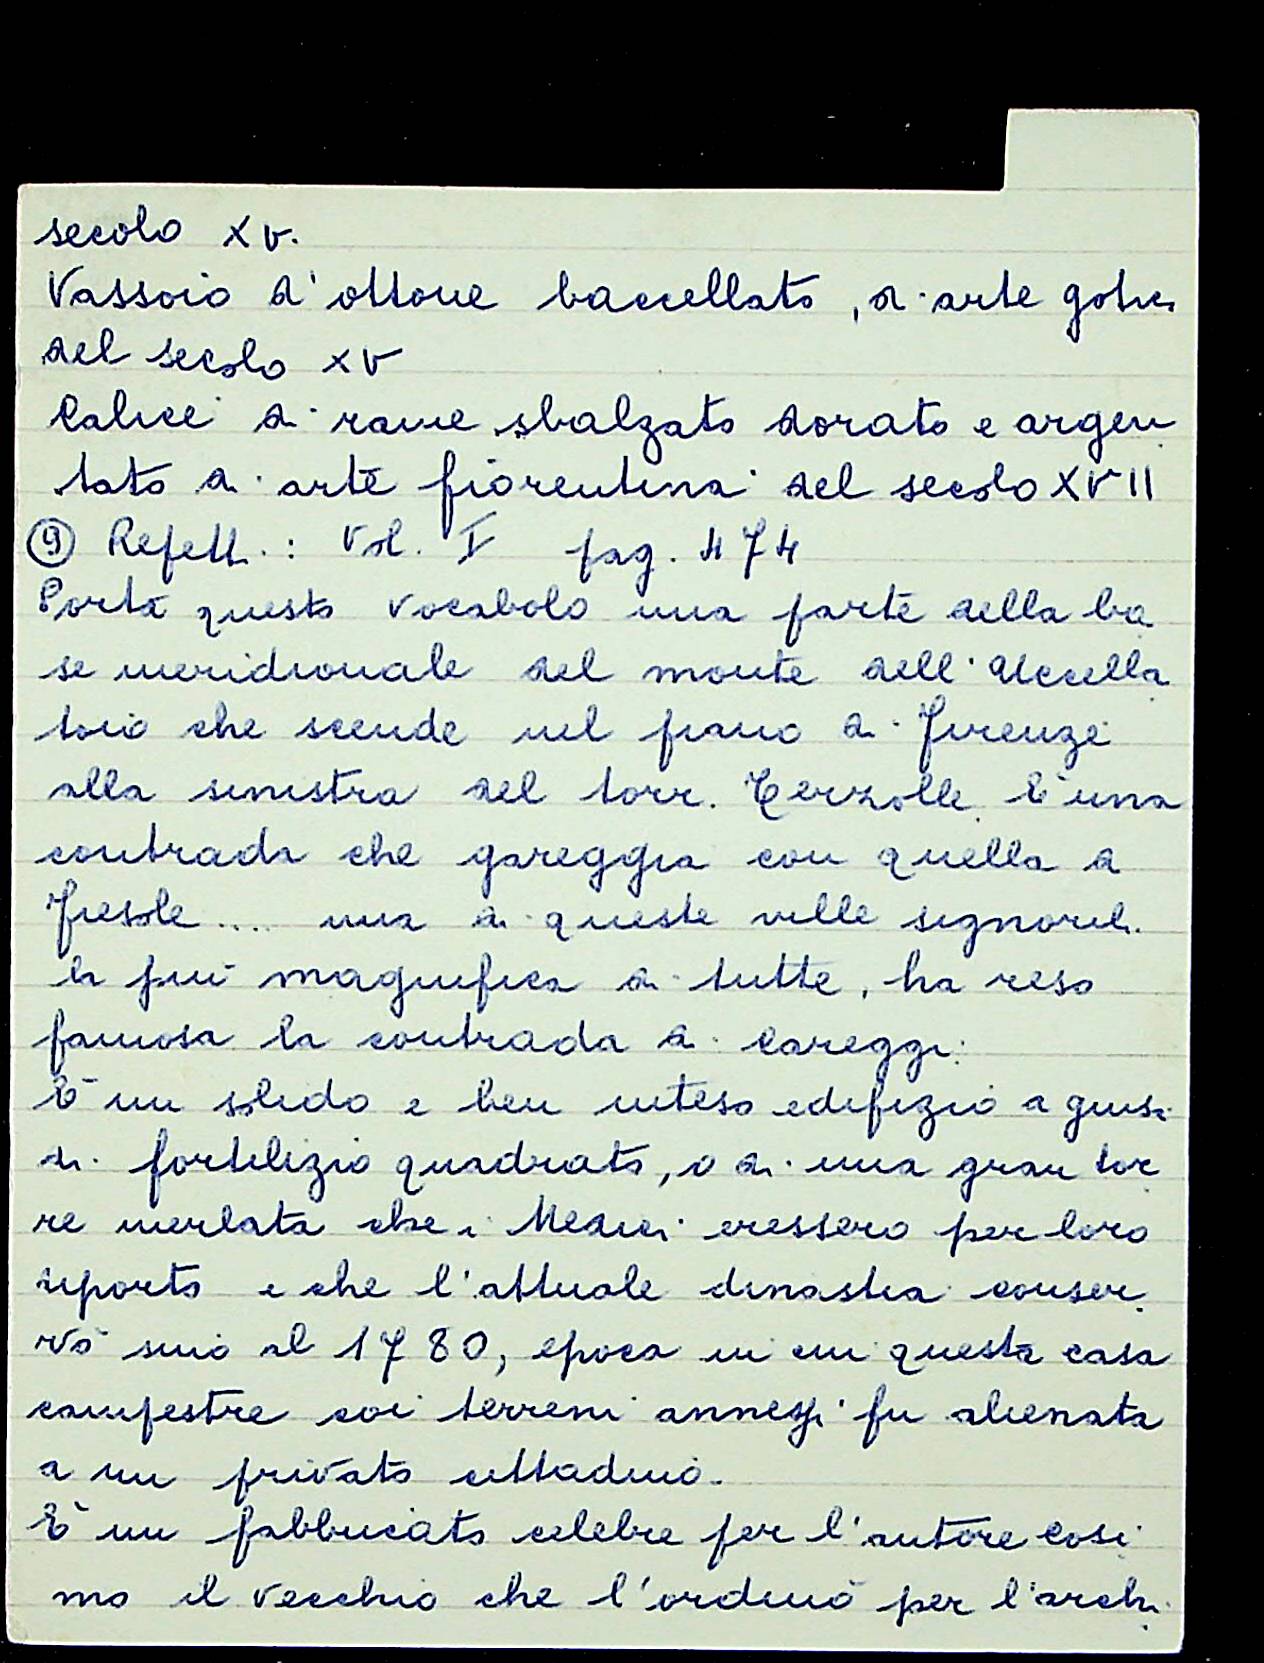 secolo XV.
Vassoio d'ottone baccellato, di arte gotica
del secolo XV
Calice di rame sbalzato dorato e argen
tato di arte fiorentina del secolo XVII
⑨ Repett.: Vol. I pag. 474
Porta questo vocabolo una parte della ba
se meridionale del monte dell'Uccella
toio che scende nel piano di Firenze
alla sinistra del torr. Terzolle. È una
contrada che gareggia con quella di
Fiesole.... una di queste ville signorili.
la più magnifica di tutte, ha reso
famosa la contrada di Careggi:
È un solido e ben inteso edifizio a guisa
di fortilizio quadrato, o di una gran tor
re merlata che i Medici eressero per loro
diporto e che l'attuale dinastia conser
vò sino al 1780, epoca in cui questa casa
campestre coi terreni annessi fu alienata
a un privato cittadino.
È un fabbricato celebre per l'autore Cosi
mo il vecchio che l'ordinò per l'archi